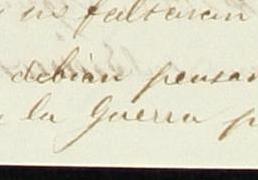 no faltaran
debian pensar
la Guerra p